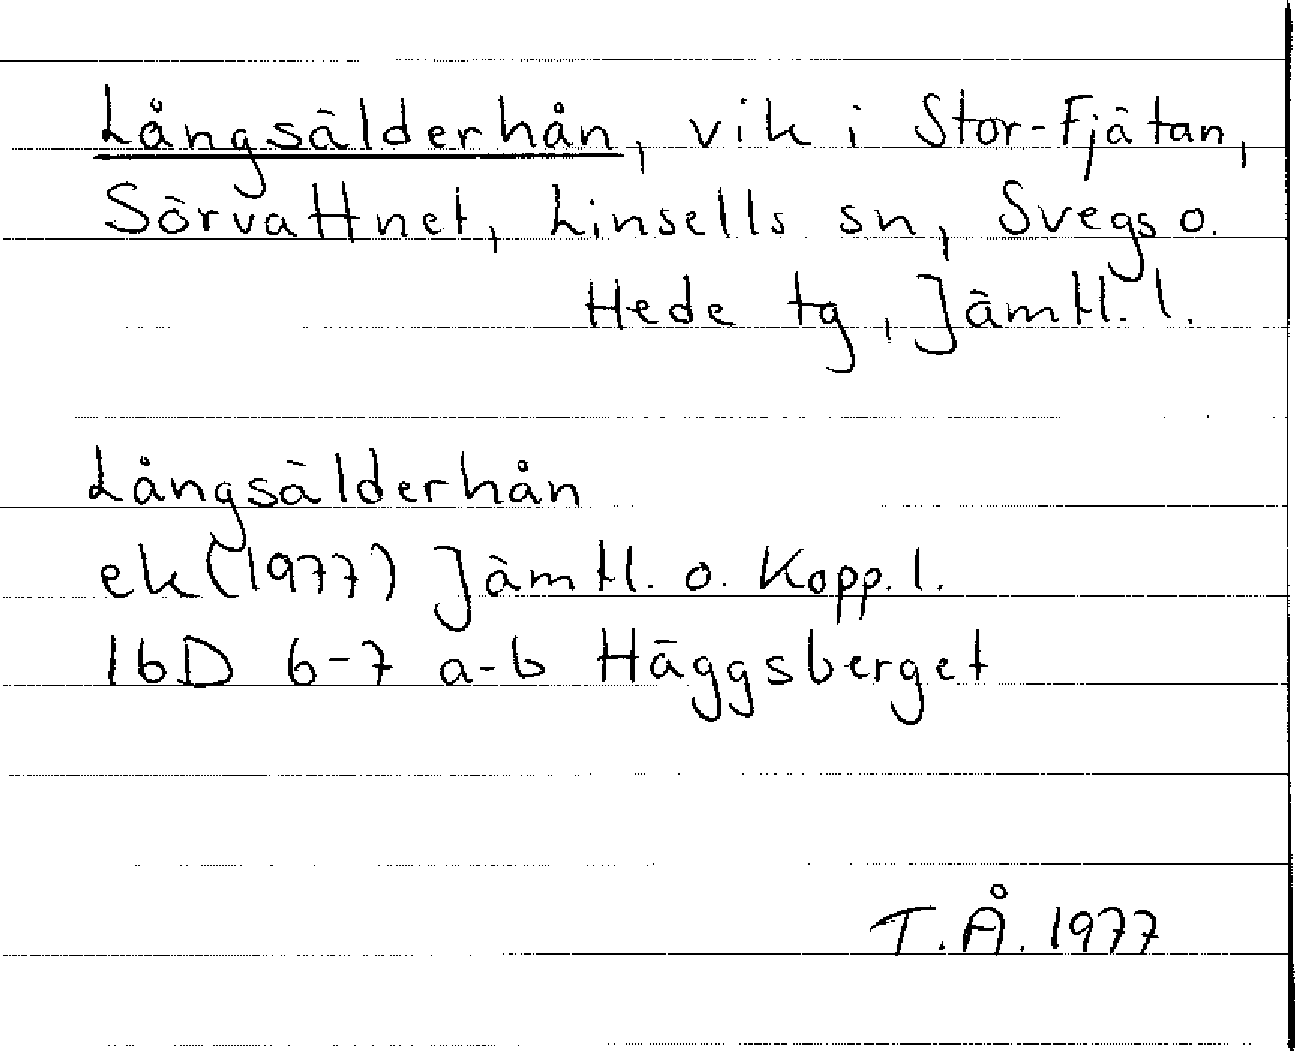 Långsälderhån, vik i Stor-Fjätan,
Sörvattnet, Linsells sn, Svegs o.
Hede tg, Jämtl. l.
Långsälderhån
ek (1977) Jämtl. o. Kopp. l.
16D 6-7 a-b Häggsberget
T.Å. 1977